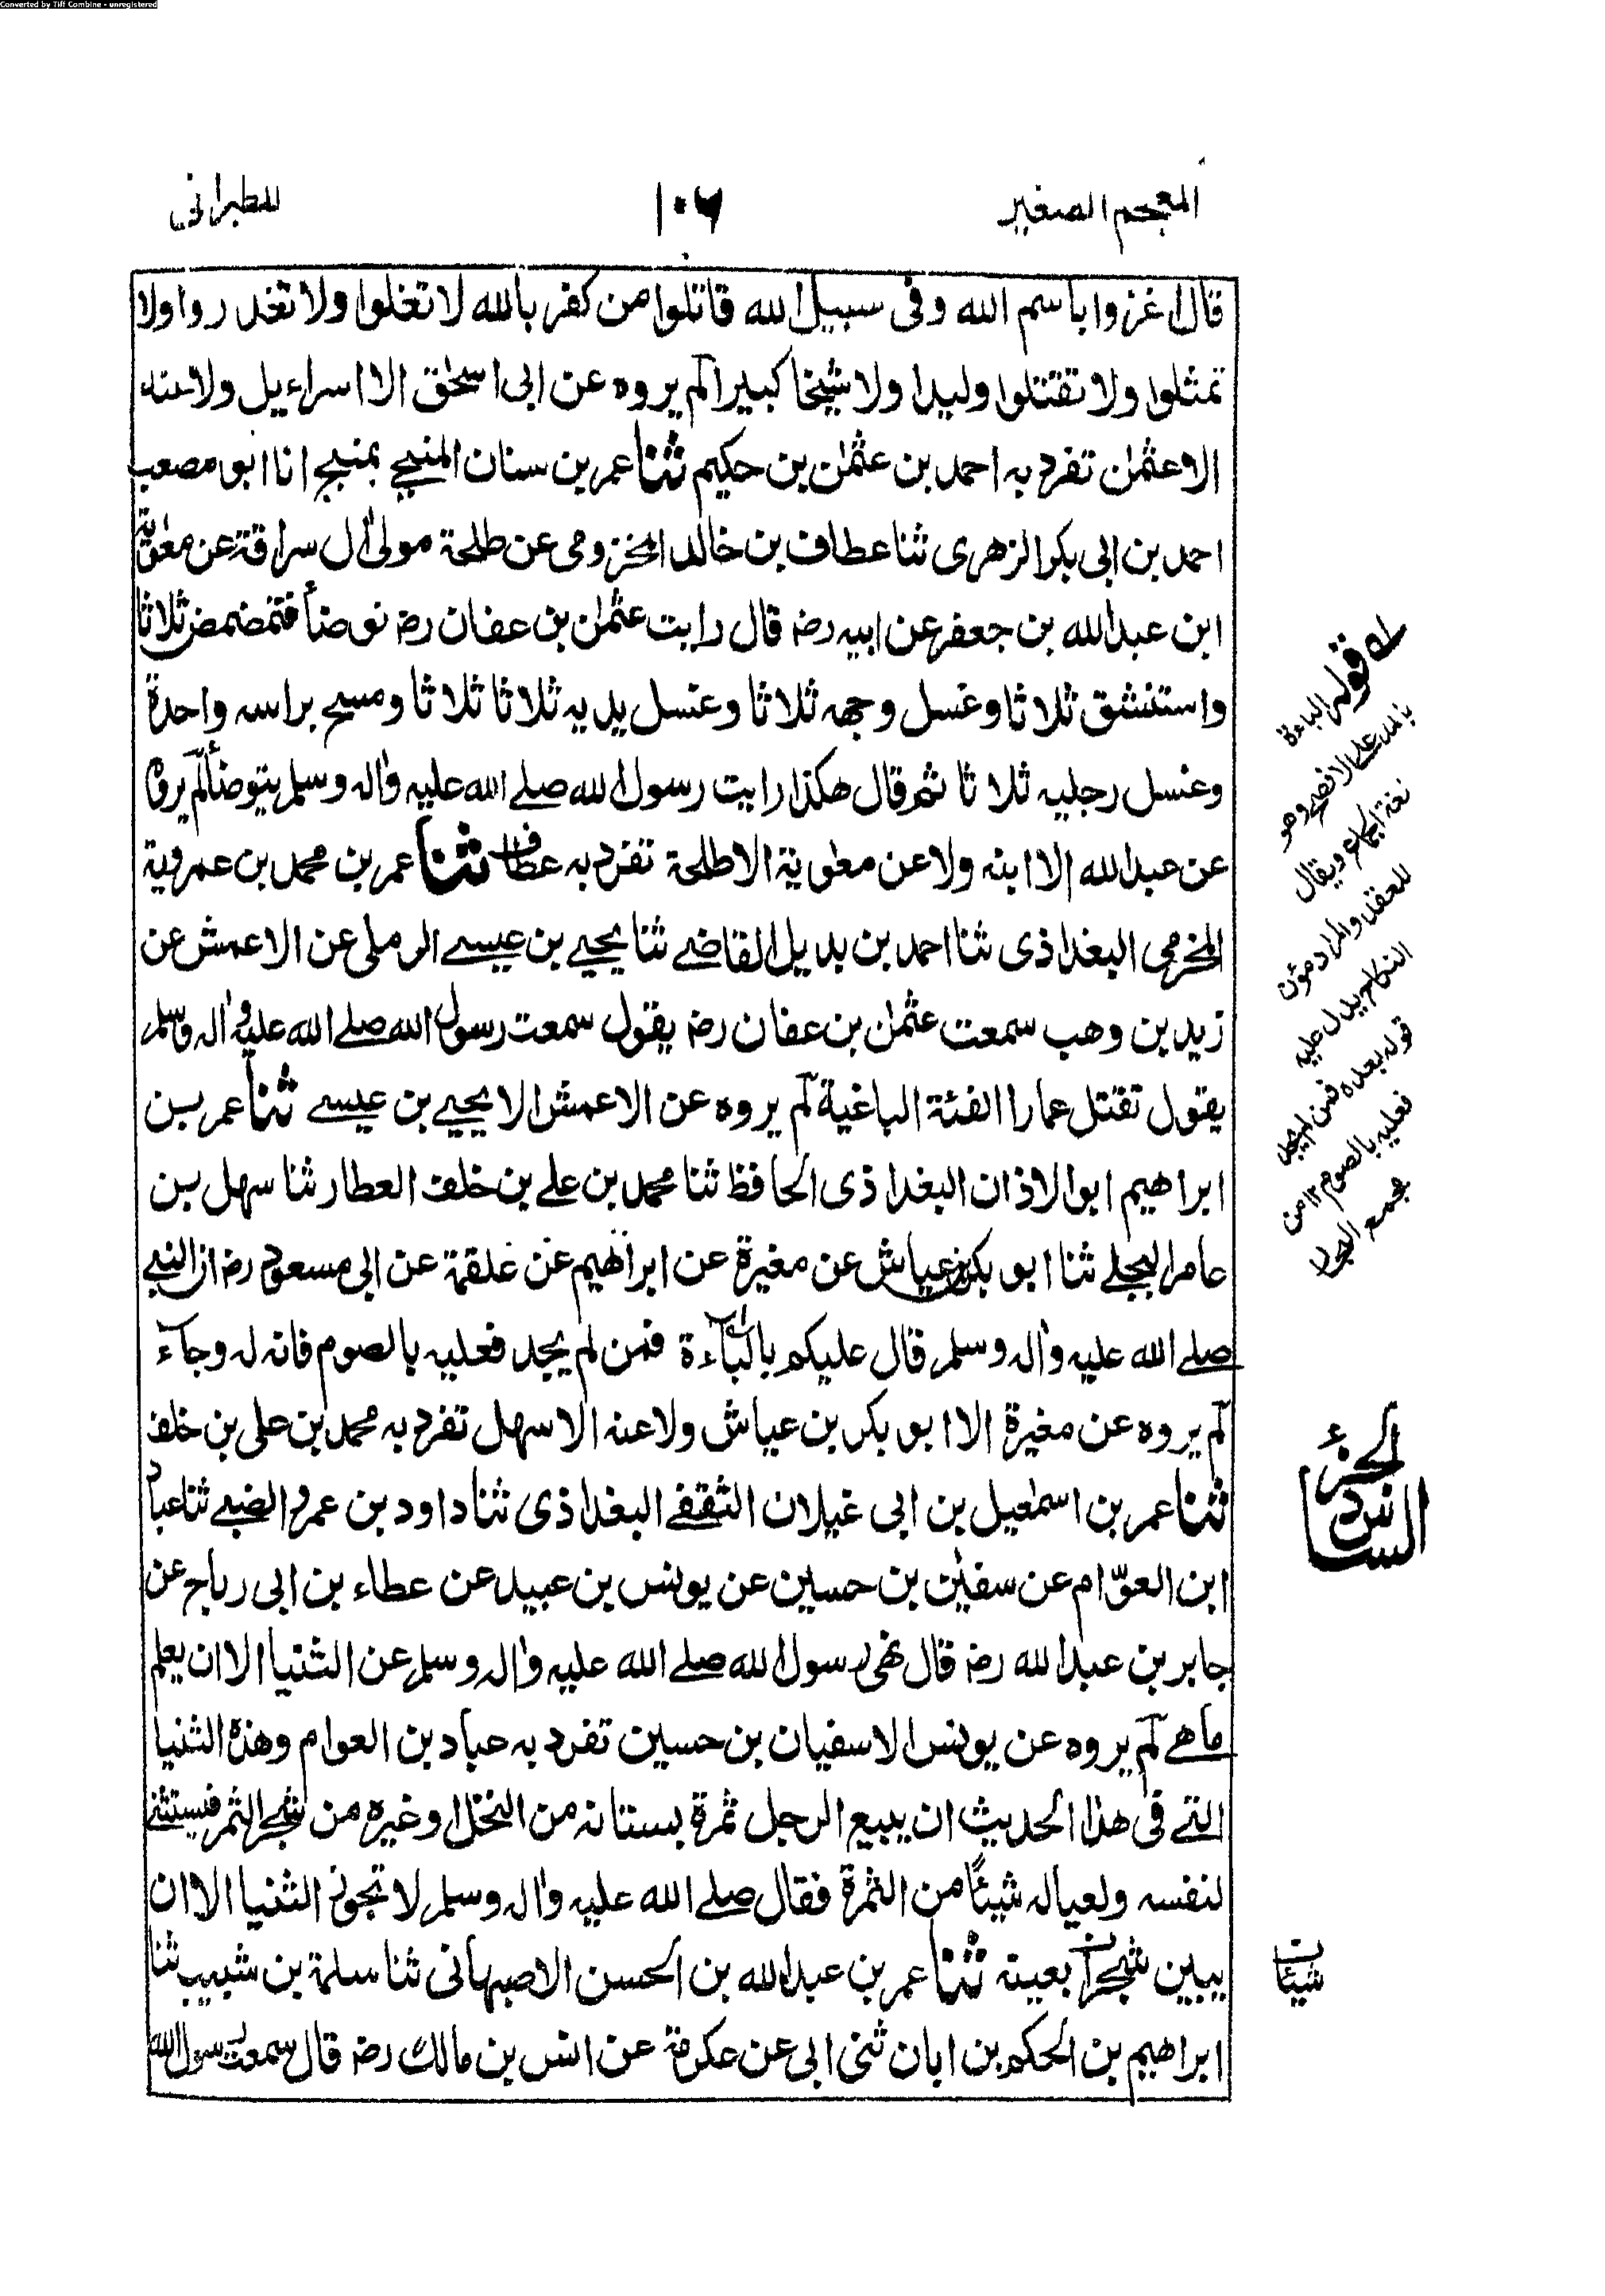 Converted by Tiff Combine - unregistered
المعجم الصغير
١٠٦
للطبرانی
قال اغزوا باسم الله وفی سبیل الله قاتلوا من کفر بالله لا تغلوا ولا تغدروا ولا
تمثلوا ولا تقتلوا ولیدا ولا شیخا کبیرا لم یروه عن ابی اسحٰق الا اسراءیل ولا عنه
الا عثمٰن تفرد به احمد بن عثمٰن بن حکیم ثنا عمر بن سنان المنبجی بمنبج انا ابو مصعب
احمد بن ابی بکر الزهری ثنا عطاف بن خالد المخزومی عن طلحة مولیٰ اٰل سراقة عن معٰویة
ابن عبدالله بن جعفر عن ابیه رضہ قال رایت عثمٰن بن عفان رضہ توضأ فتمضمض ثلاثا
واستنشق ثلاثا وغسل وجهه ثلاثا وغسل یدیه ثلاثا ثلاثا ومسح براسه واحدة
وغسل رجلیه ثلاثا ثم قال هکذا رایت رسول الله صلے الله علیه واٰله وسلم یتوضأ لم یروه
عن عبدالله الا ابنه ولا عن معٰویة الا طلحة تفرد به عطاف ثنا عمر بن محمد بن عمرویة
المخرمی البغداذی ثنا احمد بن بدیل القاضے ثنا یحیے بن عیسے الرملی عن الاعمش عن
زید بن وهب سمعت عثمٰن بن عفان رضہ یقول سمعت رسول الله صلے الله علیه واٰله وسلم
یقول تقتل عمارا الفئة الباغیة لم یروه عن الاعمش الا یحیے بن عیسے ثنا عمر بن
ابراهیم ابو الاذان البغداذی الحافظ ثنا محمد بن علے بن خلف العطار ثنا سهل بن
عامر البجلے ثنا ابو بکر بن عیاش عن مغیرة عن ابراهیم عن علقمة عن ابی مسعود رضہ ان النبے
صلے الله علیه واٰله وسلم قال علیکم بالبآءة فمن لم یجد فعلیه بالصوم فانه له وجآء
لم یروه عن مغیرة الا ابو بکر بن عیاش ولا عنه الا سهل تفرد به محمد بن علی بن خلف
ثنا عمر بن اسمٰعیل بن ابی غیلان الثقفے البغداذی ثنا داود بن عمرو الضبے ثنا عباد
ابن العوّام عن سفیٰن بن حسین عن یونس بن عبید عن عطاء بن ابی رباح عن
جابر بن عبدالله رضہ قال نهی رسول الله صلے الله علیه واٰله وسلم عن الثنیا الا ان یعلم
ماهے لم یروه عن یونس الا سفیان بن حسین تفرد به عباد بن العوام وهذه الثنیا
التے فی هذا الحدیث ان یبیع الرجل ثمرة بستانه من النخل اوغیره من شجر الثمر فیستثنے
لنفسه ولعیاله شیئًا من الثمرة فقال صلے الله علیه واٰله وسلم لا تجوز الثنیا الا ان
یبین شجرا بعینه ثنا عمر بن عبدالله بن الحسن الاصبهانی ثنا سلمة بن شبیب ثنا
ابراهیم بن الحکم بن ابان ثنی ابی عن عکرمة عن انس بن مالک رضہ قال سمعت رسول الله
لہ قوله الباءة
بالمد علے الافصح وهو
لغة الجماع ویقال
للعقد والمراد مؤن
النکاح یدل علیه
قوله بعده فمن لم یجد
فعلیه بالصوم ١٢ من
مجمع البحار
الجزء
السادس
شیئات